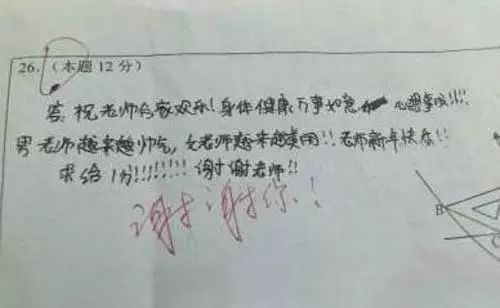 26.（本题 12 分）
答: 祝老师合家欢乐! 身体健康 万事如意 心想事成!!!!
男老师越来越帅气, 女老师越来越美丽!! 老师新年快乐!!
求给 1分!!!!!!!! 谢谢老师!!
谢谢你!!
B
C